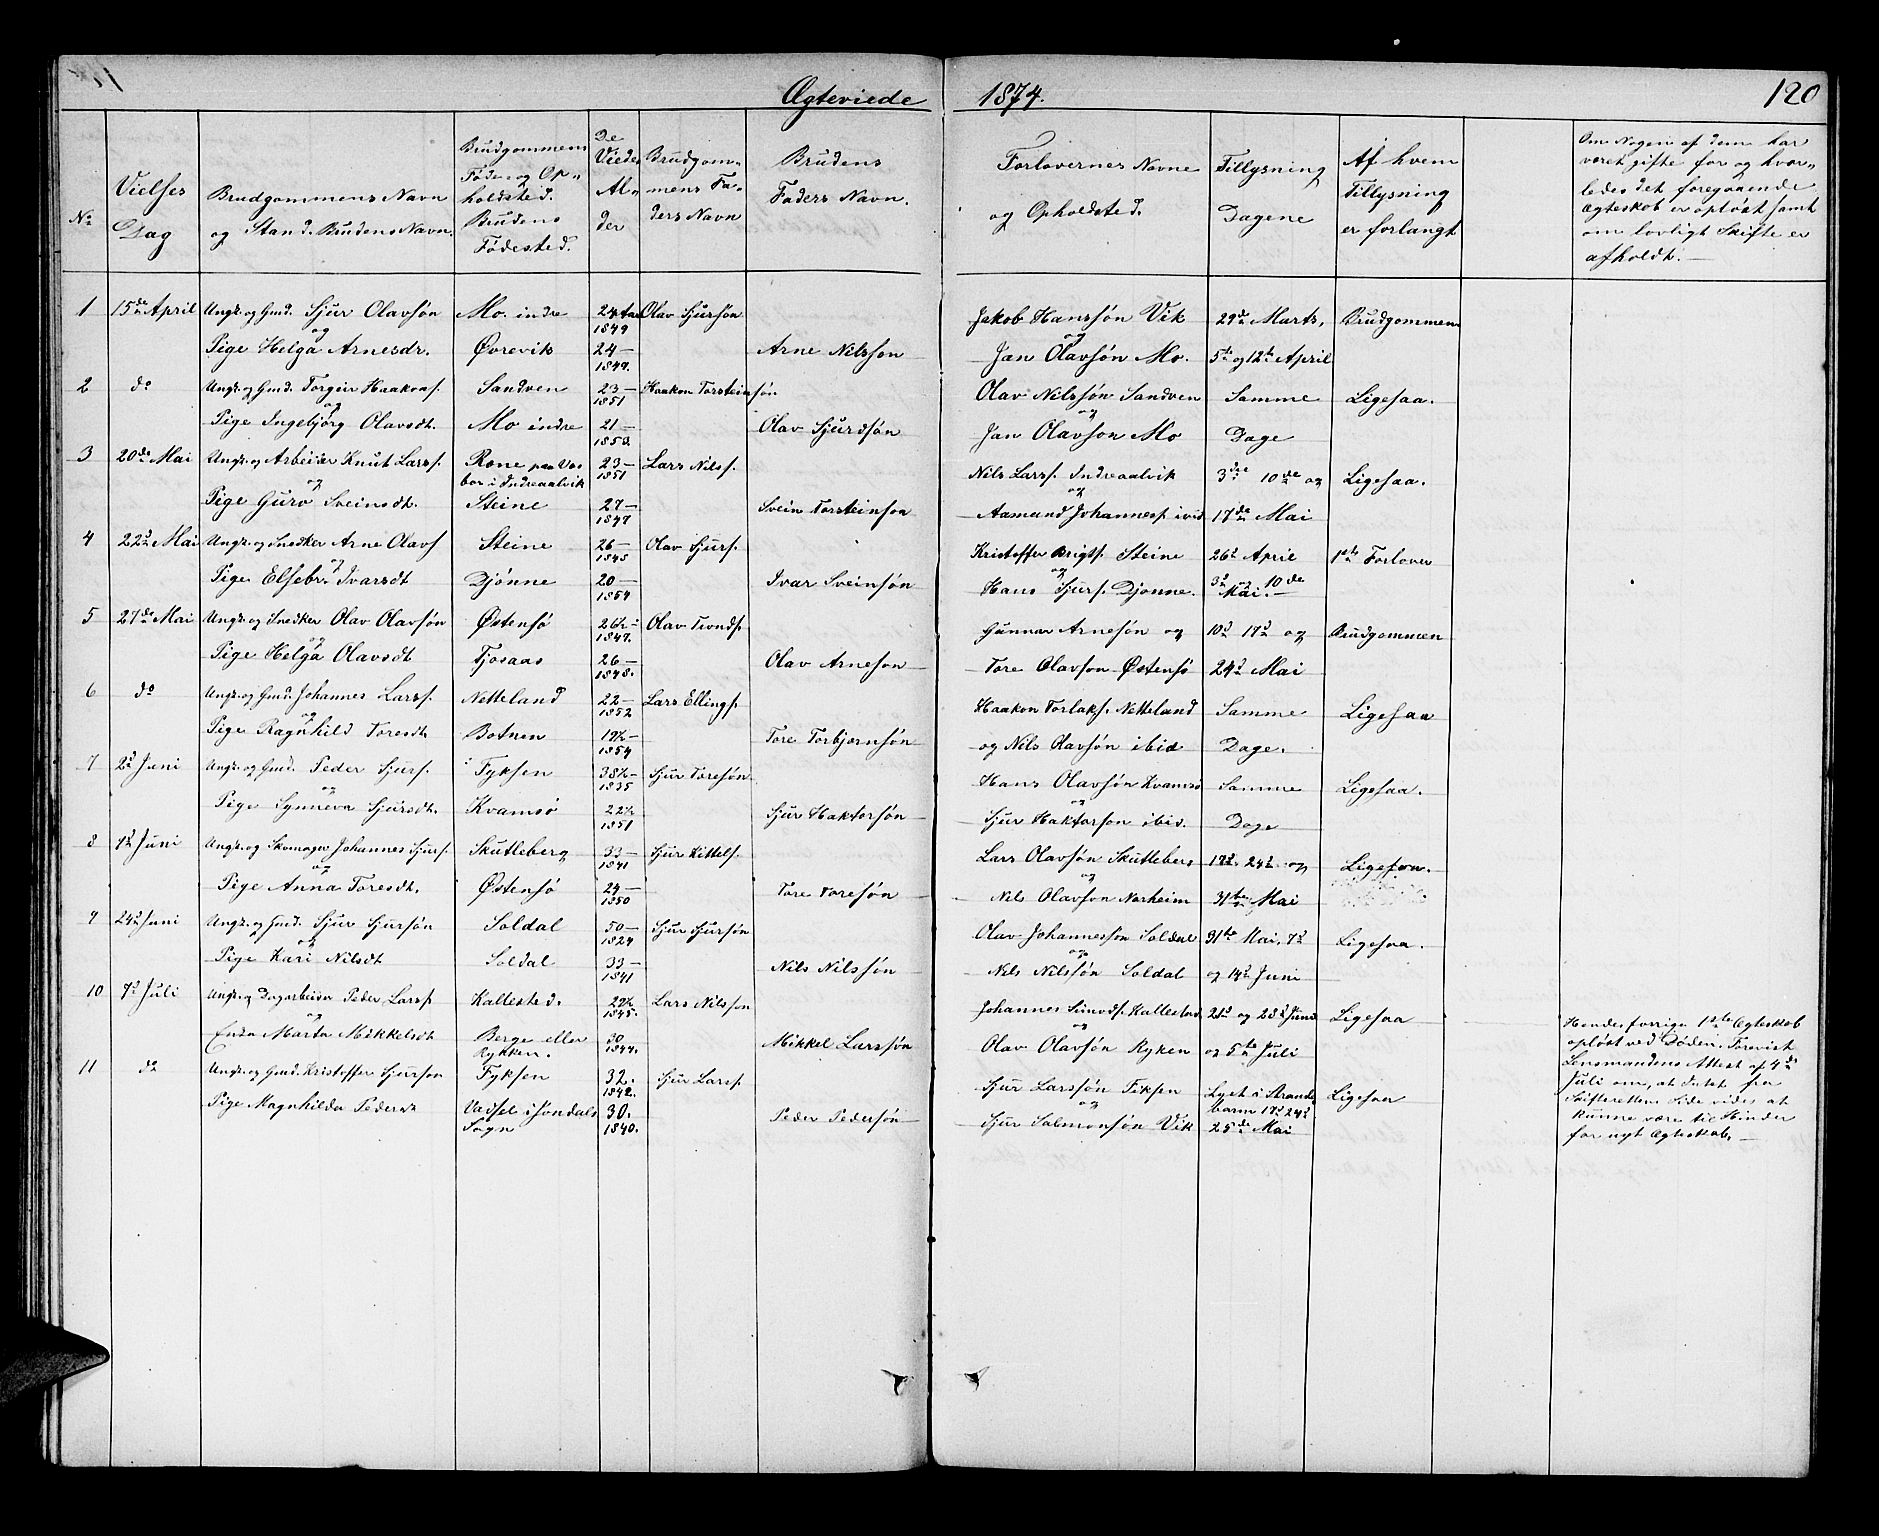 Ægteviede
1874.
120
No
Vielses Dag
Brudgommens Navn og Stand. Brudens Navn.
Brudgommens Føde og Opholdsted. Brudens Fødested.
De Viedes Alder
Brudgommens Faders Navn
Brudens Faders Navn.
Forlovernes Navne og Opholdsted.
Tillysning Dagene
Af hvem Tillysning er forlangt
Om Nogen af dem har været gifte før og hvorledes det foregaaende Ægteskab er opløst samt om lovligt Skifte er afholdt.
1 15de April Ungk. og Gmd. Sjur Olavsøn Mo. indre 24 Aar 1849 Olav Sjursøn Jakob Hanssøn Vik 29de Marts, Brudgommen
og
Pige Helga Arnesdr. Øvrevik 24 1849. Arne Nilsson Jan Olavsøn Mo. 5te og 12te April
2 do Ungk. og Gmd. Torgeir Haakons. Sandven 23 1851 Haakon Torsteinsøn Olav Nilssøn Sandven Samme Ligesaa.
og
Pige Ingebjørg Olavsdt. Mo indre 21 1853. Olav Sjurdsøn Jan Olavson Mo Dage
3 20de Mai Ungk. og Arbeider Knut Larss. Rone paa Vos bor i Indreaalvik 23 1851 Lars Nilss. Nils Larss. Indreaalvik 3die 10de og Ligesaa.
og
Pige Guro Sveinsdt. Steine 27 1847 Svein Torsteinson Aamund Johanness. ibid 17de Mai
4 22d Mai Ungk. og Snedker Arne Olavs Steine 26 1848 Olav Sjurs. Kristoffer Brigts. Steine 26d April 1ste Forlover
og
Pige Elsebr. Ivarsdt Djønne 20 1854 Ivar Sveinsøn Hans Sjurs. Djønne. 3d og 10de Mai.
5 27de Mai Ungk. og Snedker Olav Olavsøn Østensø 26½ 1847. Olav Tronds. Gunnar Arnesøn og 10d 17d og Brudgommen
og
Pige Helga Olavsdt Tjosaas 26 1848. Olav Arneson Tore Olavson Østensø 24d Mai
6 do Ungk. og Gmd. Johannes Larss. Netteland 22 1852 Lars Ellings. Haakon Torlaks. Netteland Samme Ligesaa
og
Pige Ragnhild Toresdt Botnen 19½ 1854 Tore Torbjørnsøn og Nils Olavsøn ibid Dage.
7 2d Juni Ungk. og Gmd. Peder Sjurs. Fyksen 38½ 1835 Sjur Toresøn Hans Olavsøn Kvamsø Samme Ligesaa.
og
Pige Synneva Sjursdt. Kvamsø 22½ 1851 Sjur Haktorsøn Sjur Haktorson ibid. Dage
8 7d Juni Ungk. og Skomager Johannes Sjurs. Skutleberg 33 1841 Sjur Kittels. Lars Olavsøn Skutleberg 17d. 24d. og Ligesaa.
og
Pige Anna Toresdt. Østensø 24 1850 Tore Toresøn Nils Olavson Norheim 31te Mai
9 24d Juni Ungk. og Gmd. Sjur Sjursøn Soldal 50 1824 Sjur Sjursøn Olav Johannesson Soldal 31te Mai, 7d Ligesaa.
og
Pige Kari Nilsdt Soldal 33 1841 Nils Nilssøn Nils Nilssøn Soldal og 14d Juni
10 7d Juli Ungk. og Dagarbeider Peder Larss Kallested. 29½ 1845. Lars Nilsson Johannes Simods. Kallested 21d og 28d Juni Ligesaa
og
Enke Marta Mikkelsdt Berge eller Rykken. 30 1844. Mikkel Larssøn Olav Olavsøn Ryken og 5te Juli
Hendes forrige 1ste Ægteskab opløst ved Døden. Forevist Lensmandens Attest af 4de Juli om, at Intet fra Skifterettens Side vides at kunne være til Hinder for nyt Ægteskab.
11 do Ungk. og Gmd. Kristoffer Sjurson Fyksen 32. 1842. Sjur Larss. Sjur Larssøn Fiksen Lyst i Strandebarm 17d 24d Ligesaa
og
Pige Magnhilda Pedersdt i Jondals Sogn 30. 1840. Peder Pedersøn Sjur Salmonsøn Vik 25de Mai